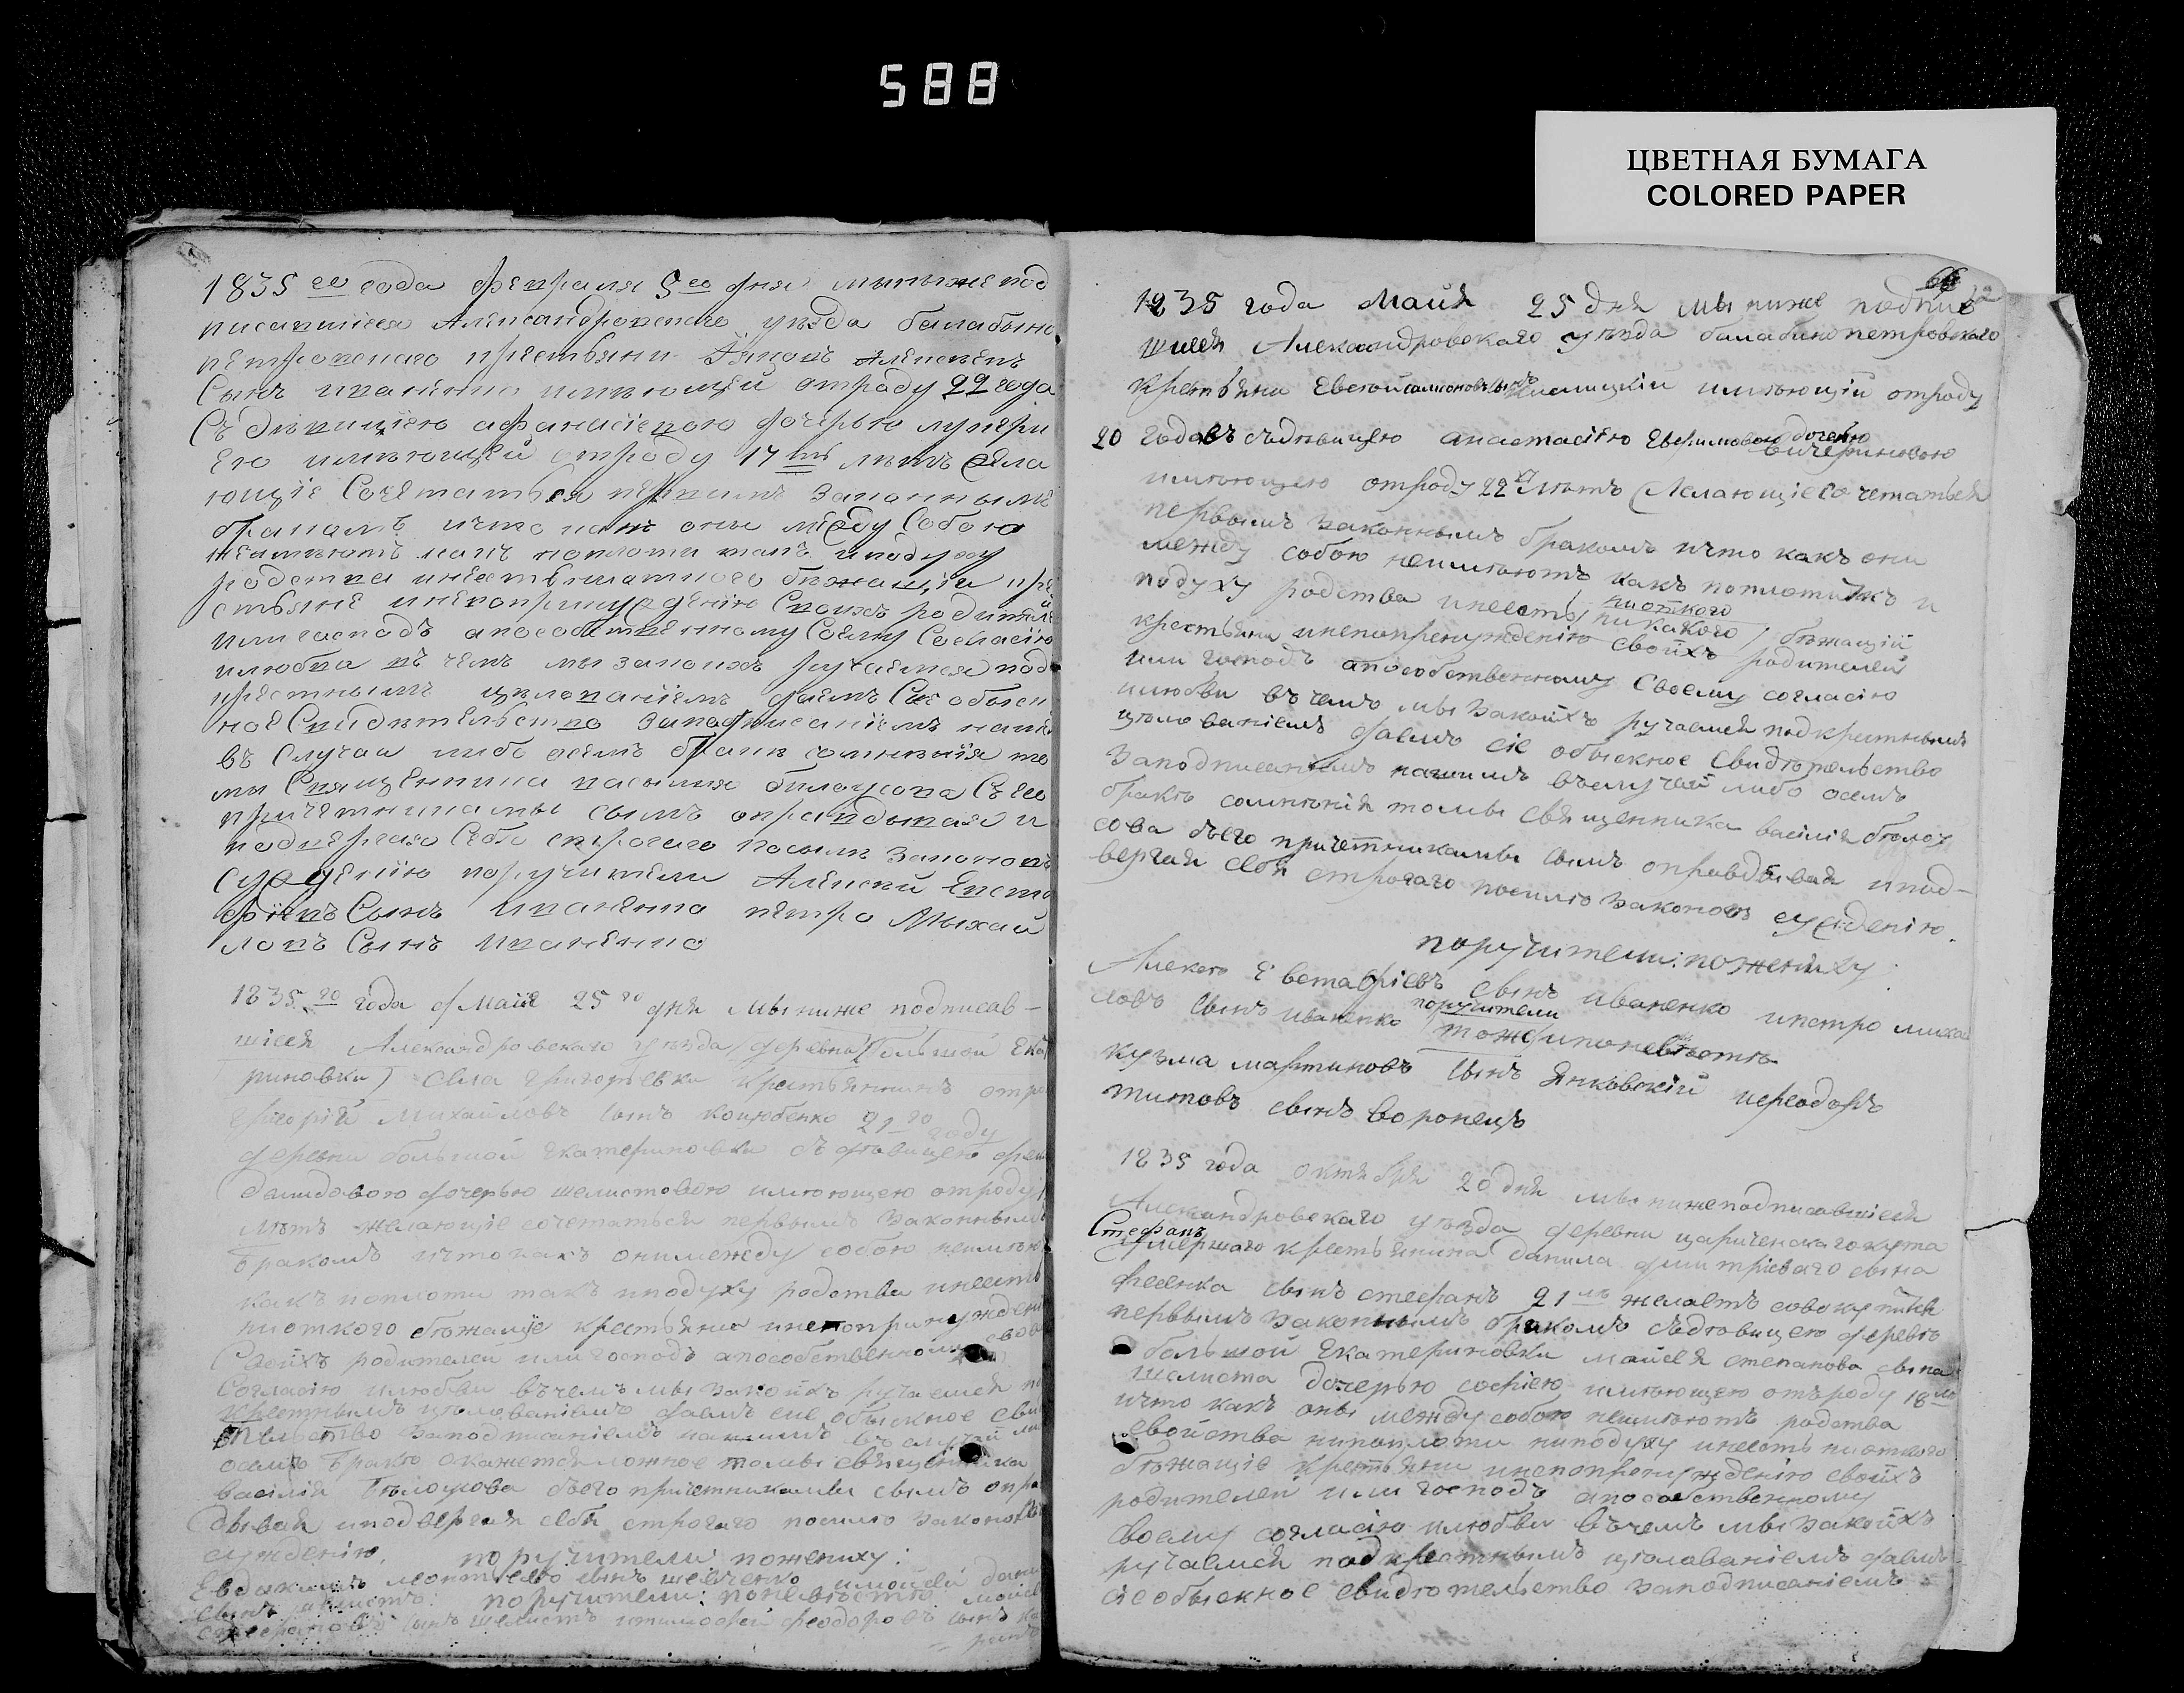 588
ЦВЕТНАЯ БУМАГА
COLORED PAPER
1835 го года февраля 5 го дня мыниже под
писавшиеся Александровского уезда балабыно
петровского крестьяни Алексеевъ
Сынъ иваненко имѣющей отроду 22 года
Съ дѣвицѣю афанасіевою дочерью лукери
ею имѣющей отроду 17 ть лѣтъ
ющіе Сочетатьса первымъ законнымъ
бракомъ ичто какъ оны Собою
неимѣютъ какъ поплоти такъ иподуху
родства инѣесть бѣжащіи кре
стьяне Своихъ родителѣй
или господъ апособственному Соему Согласію
илюбви въ чемъ мы заноихъ ручаемся под
крестнымъ целованіемъ даемъ Сіе обыск
ное Свидѣтельство заподписаніемъ наши
въ Случаи либъ осемъ бракѣ сомненія то
мы Священника василия билоусова Съ его
причетникамы сымъ оправдывая и
подвергаю Себе строгого посиле законовъ
Суждению поручители Алексей Евста
фіевъ Сынъ Иваненко петро Мыхай
ловъ Сынъ Иваненко
1835 го года Майя 25 го дня мыниже подписав-
шіеся Александровскаго уѣзда (деревны большой Ека
риновки) села григорьевки крестьянинъ отро
григорій Михайловъ сынъ коцюбенко 21 го году
деревни большой екатериновки съ дѣвицею
демидовою дочерью шелистовою имѣющею отроду
лѣтъ желающіе сочетаться первымъ законнымъ
бракомъ ичтокакъ онимежду собою неимѣю
какъ поплоти такъ иподуху родства инеесть
ниоткого бѣжащіе крестьяни инепопринужден
Своихъ родителей или господъ апособственному
Согласію илюбви въчемъ мы закоихъ ручаемся по
крестнымъ цѣлованіемъ даемъ сие обыскное сви
тельство заподписаніемъ нашимъ въ случай ли
осемъ бракѣ окажется ложное томы священника
василія бѣлоусова съего причетникамы сымъ опра
дывая иподвергая себя строгаго посилю законовъ
сужденію. поручители пожениху:
Евдокимъ сынъ шевченко имойсей
сынъ поручители: поневѣстѣ мойсей
сынъ шелистъ итимофей феодоровъ сынъ
66
1835 года Майя 25 дня мы ниже подписав
шиеся Александровскаго уѣзда балабинопетровскаго
крестьяни имѣющій отроду
20 годовъ съдѣвицею анастасіею Ефимовою дочерью
имѣющею отроду 22 лѣтъ желающіесочетаться
первымъ законнымъ бракомъ ичто какъ они
между собою неимѣютъ какъ поплотитакъ и
подуху родства инеесть ниоткого
(никакого) бѣжащій
крестьяни инепопренужденію своихъ родителей
или господъ апособственному Своему согласію
илюбви въчемъ мы закоихъ ручаемся подкрестнымъ
цѣлованіемъ даемъ сіе обыскное свидѣтельство
заподписаніемъ нашимъ въслучай либо осемъ
бракѣ сомнѣнія томы священника василія бѣлоу
сова съего причетникамы сымъ оправдывая ипод-
вергая себя строгаго посилю законовъ сужденію.
поручители: пожениху:
Алексей Евстафіевъ сынъ иваненко ипетро михай
ловъ сынъ иваненко поручители
тожъ поневѣстѣ
кузьма мартиновъ сынъ янковскій ифеодоръ
титовъ сынъ воронецъ
1835 года октября 20 дня мы нижеподписавшіеся
Александровскаго уѣзда деревни цариченскагокута
Стефанъ
умершаго крестьянина данила дмитріеваго сына
фесенка сынъ стефанъ 21 лѣ желаетъ совокупится
первымъ законнымъ бракомъ съдѣвицею деревнѣ
большой Екатериновки мойсея степанова сына
шелиста дочерью софіею имѣющею отъроду 18 лѣ
ичто какъ оны между собою неимѣютъ родства
свойства нипоплоти ниподуху инеесть ниоткого
бѣжащіе крестьяни инепопренужденію своихъ
родителей или господъ апособственному
своему согласію илюбви въчемъ мы закоихъ
ручаемся подкрестнымъ цѣлованіемъ даемъ
сіеобыскное свидѣтельство заподписаніемъ